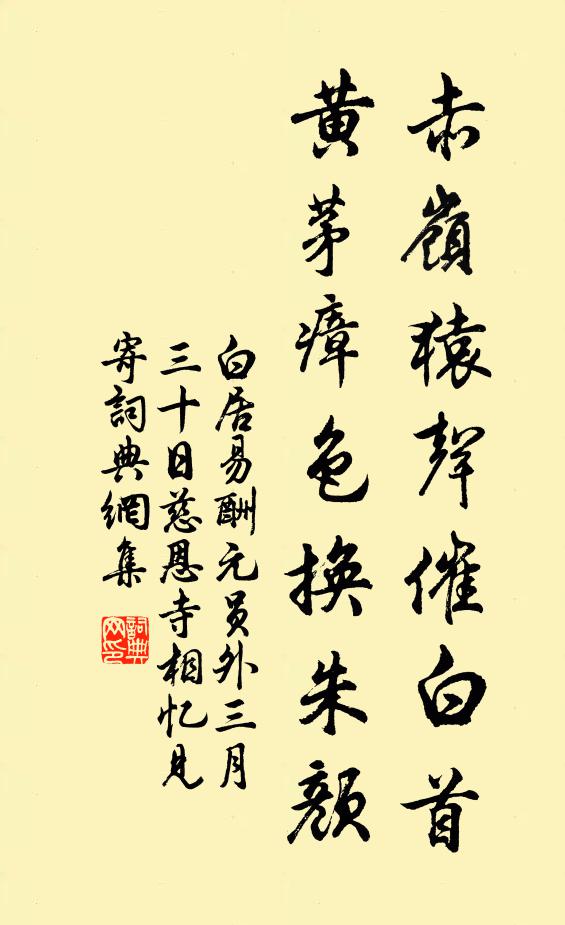 赤嶺猿聲催白首
黄茅瘴色換朱顏
白居易酬元员外三月
三十日慈恩寺相忆見
寄詞典網集
詞典
网印